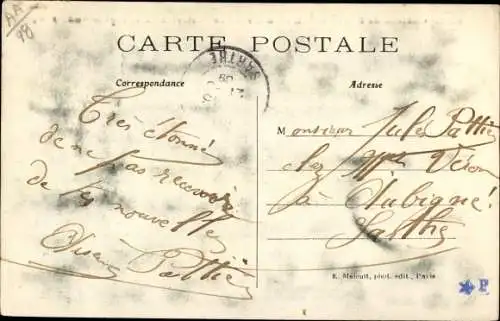 AA
98
CARTE POSTALE
Correspondance
Adresse
SARTHE
Très étonné
de ne pas recevoir
de tes nouvelles
Pattier
Monsieur Jules Pattier
chez Veron
à Aubigné
Sarthe
E. Mainult, phot. édit., Paris
P